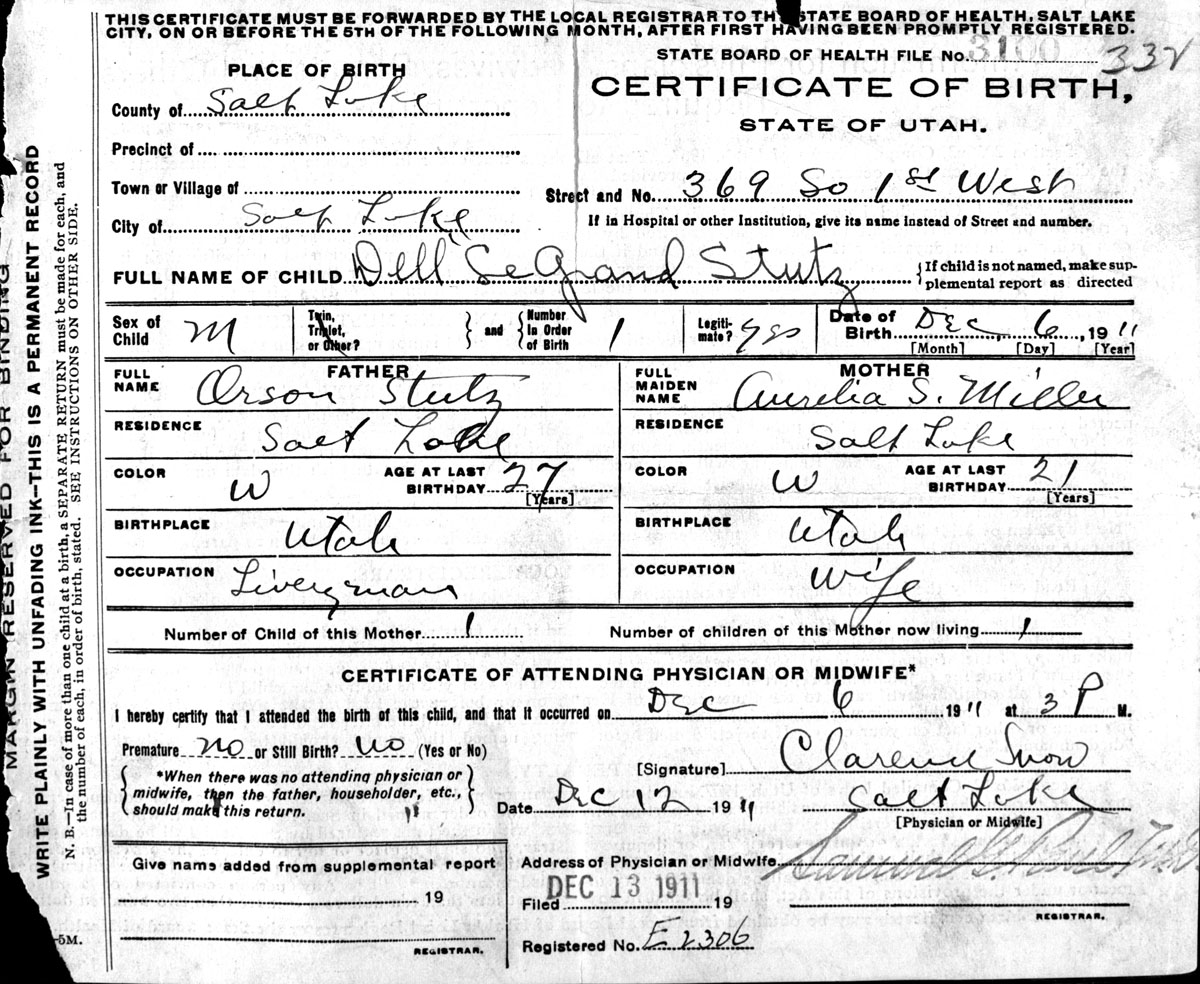 THIS CERTIFICATE MUST BE FORWARDED BY THE LOCAL REGISTRAR TO THE STATE BOARD OF HEALTH, SALT LAKE
CITY, ON OR BEFORE THE 5TH OF THE FOLLOWING MONTH, AFTER FIRST HAVING BEEN PROMPTLY REGISTERED.
STATE BOARD OF HEALTH FILE No. 3100 332
PLACE OF BIRTH
CERTIFICATE OF BIRTH,
STATE OF UTAH.
County of Salt Lake
Precinct of
Town or Village of
Street and No. 369 So 1st West
City of Salt Lake
If in Hospital or other Institution, give its name instead of Street and number.
FULL NAME OF CHILD Dell SeGrand Stutz {If child is not named, make sup-
plemental report as directed
Sex of Child M
Twin, Triplet, or Other? } and { Number In Order of Birth 1
Legiti-mate? yes
Date of Birth Dec 6, 1911
[Month] [Day] [Year]
FATHER
FULL NAME Orson Stutz
RESIDENCE Salt Lake
COLOR W AGE AT LAST BIRTHDAY 27
[Years]
BIRTHPLACE Utah
OCCUPATION Liveryman
MOTHER
FULL MAIDEN NAME Aurelia S. Miller
RESIDENCE Salt Lake
COLOR W AGE AT LAST BIRTHDAY 21
[Years]
BIRTHPLACE Utah
OCCUPATION Wife
Number of Child of this Mother 1 Number of children of this Mother now living 1
CERTIFICATE OF ATTENDING PHYSICIAN OR MIDWIFE*
I hereby certify that I attended the birth of this child, and that it occurred on Dec 6 1911 at 3 P M.
Premature no or Still Birth? no (Yes or No)
{ *When there was no attending physician or
midwife, then the father, householder, etc.,
should make this return. }
[Signature] Clarence Snow
Date Dec 12 1911 Salt Lake
[Physician or Midwife]
Give name added from supplemental report
19
REGISTRAR.
Address of Physician or Midwife
Filed DEC 13 1911 19
REGISTRAR.
Registered No. E2306
MARGIN RESERVED FOR BINDING
WRITE PLAINLY WITH UNFADING INK—THIS IS A PERMANENT RECORD
N. B.—In case of more than one child at a birth, a SEPARATE RETURN must be made for each, and
the number of each, in order of birth, stated. SEE INSTRUCTIONS ON OTHER SIDE.
-5M.